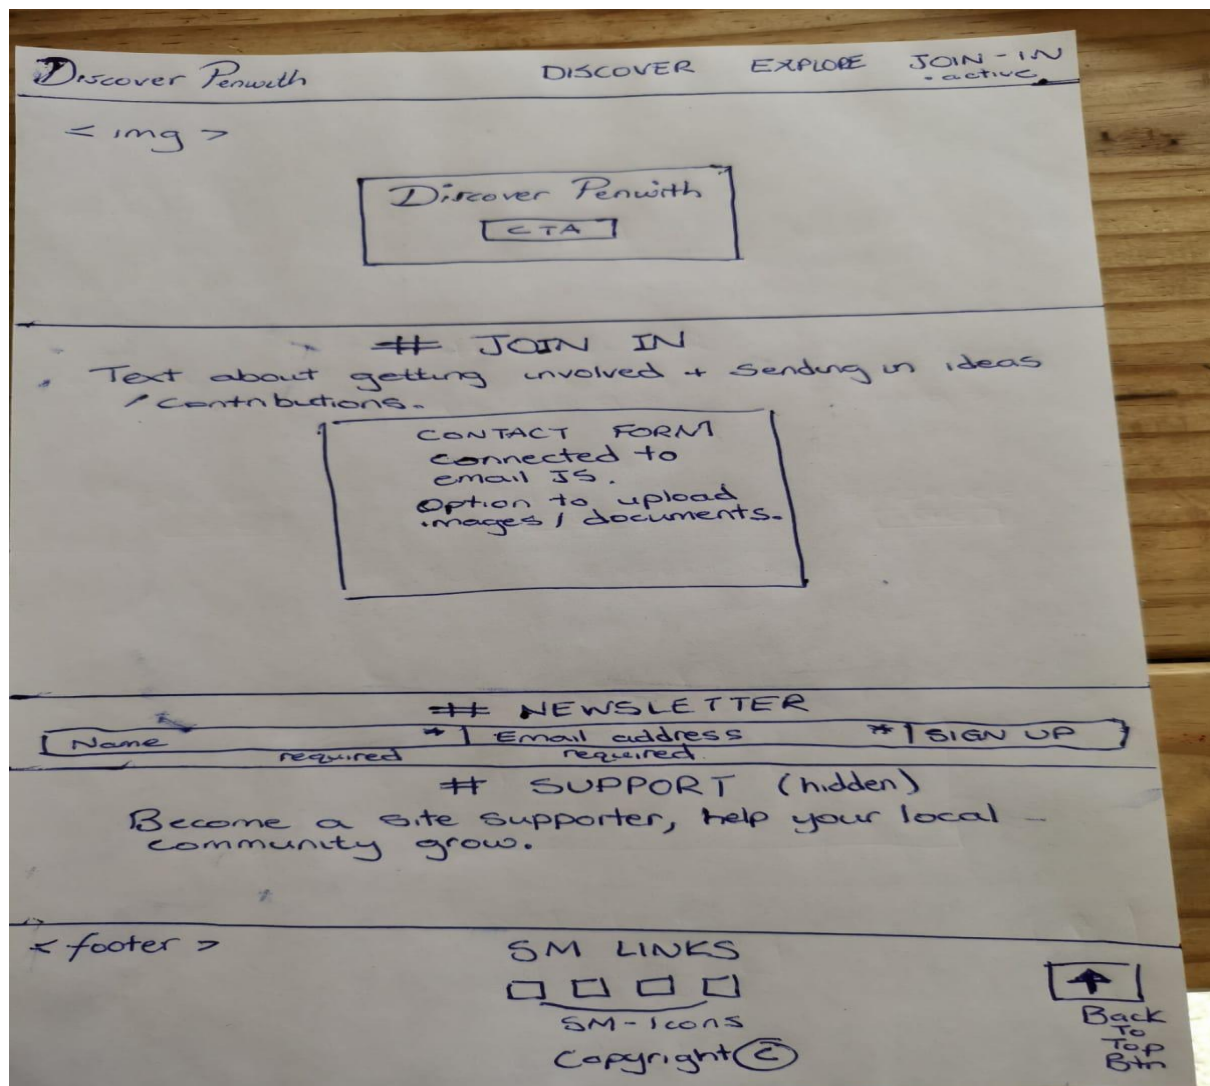 Discover Penwith DISCOVER EXPLORE JOIN-IN
.active
<img>
Discover Penwith
CTA
# JOIN IN
Text about getting involved + sending in ideas
/ contributions.
CONTACT FORM
connected to
email JS.
Option to upload
images / documents.
# NEWSLETTER
Name * Email address * SIGN UP
required required
# SUPPORT (hidden)
Become a site supporter, help your local
community grow.
<footer> SM LINKS
SM-Icons
Copyright ©
Back
To
Top
Btn